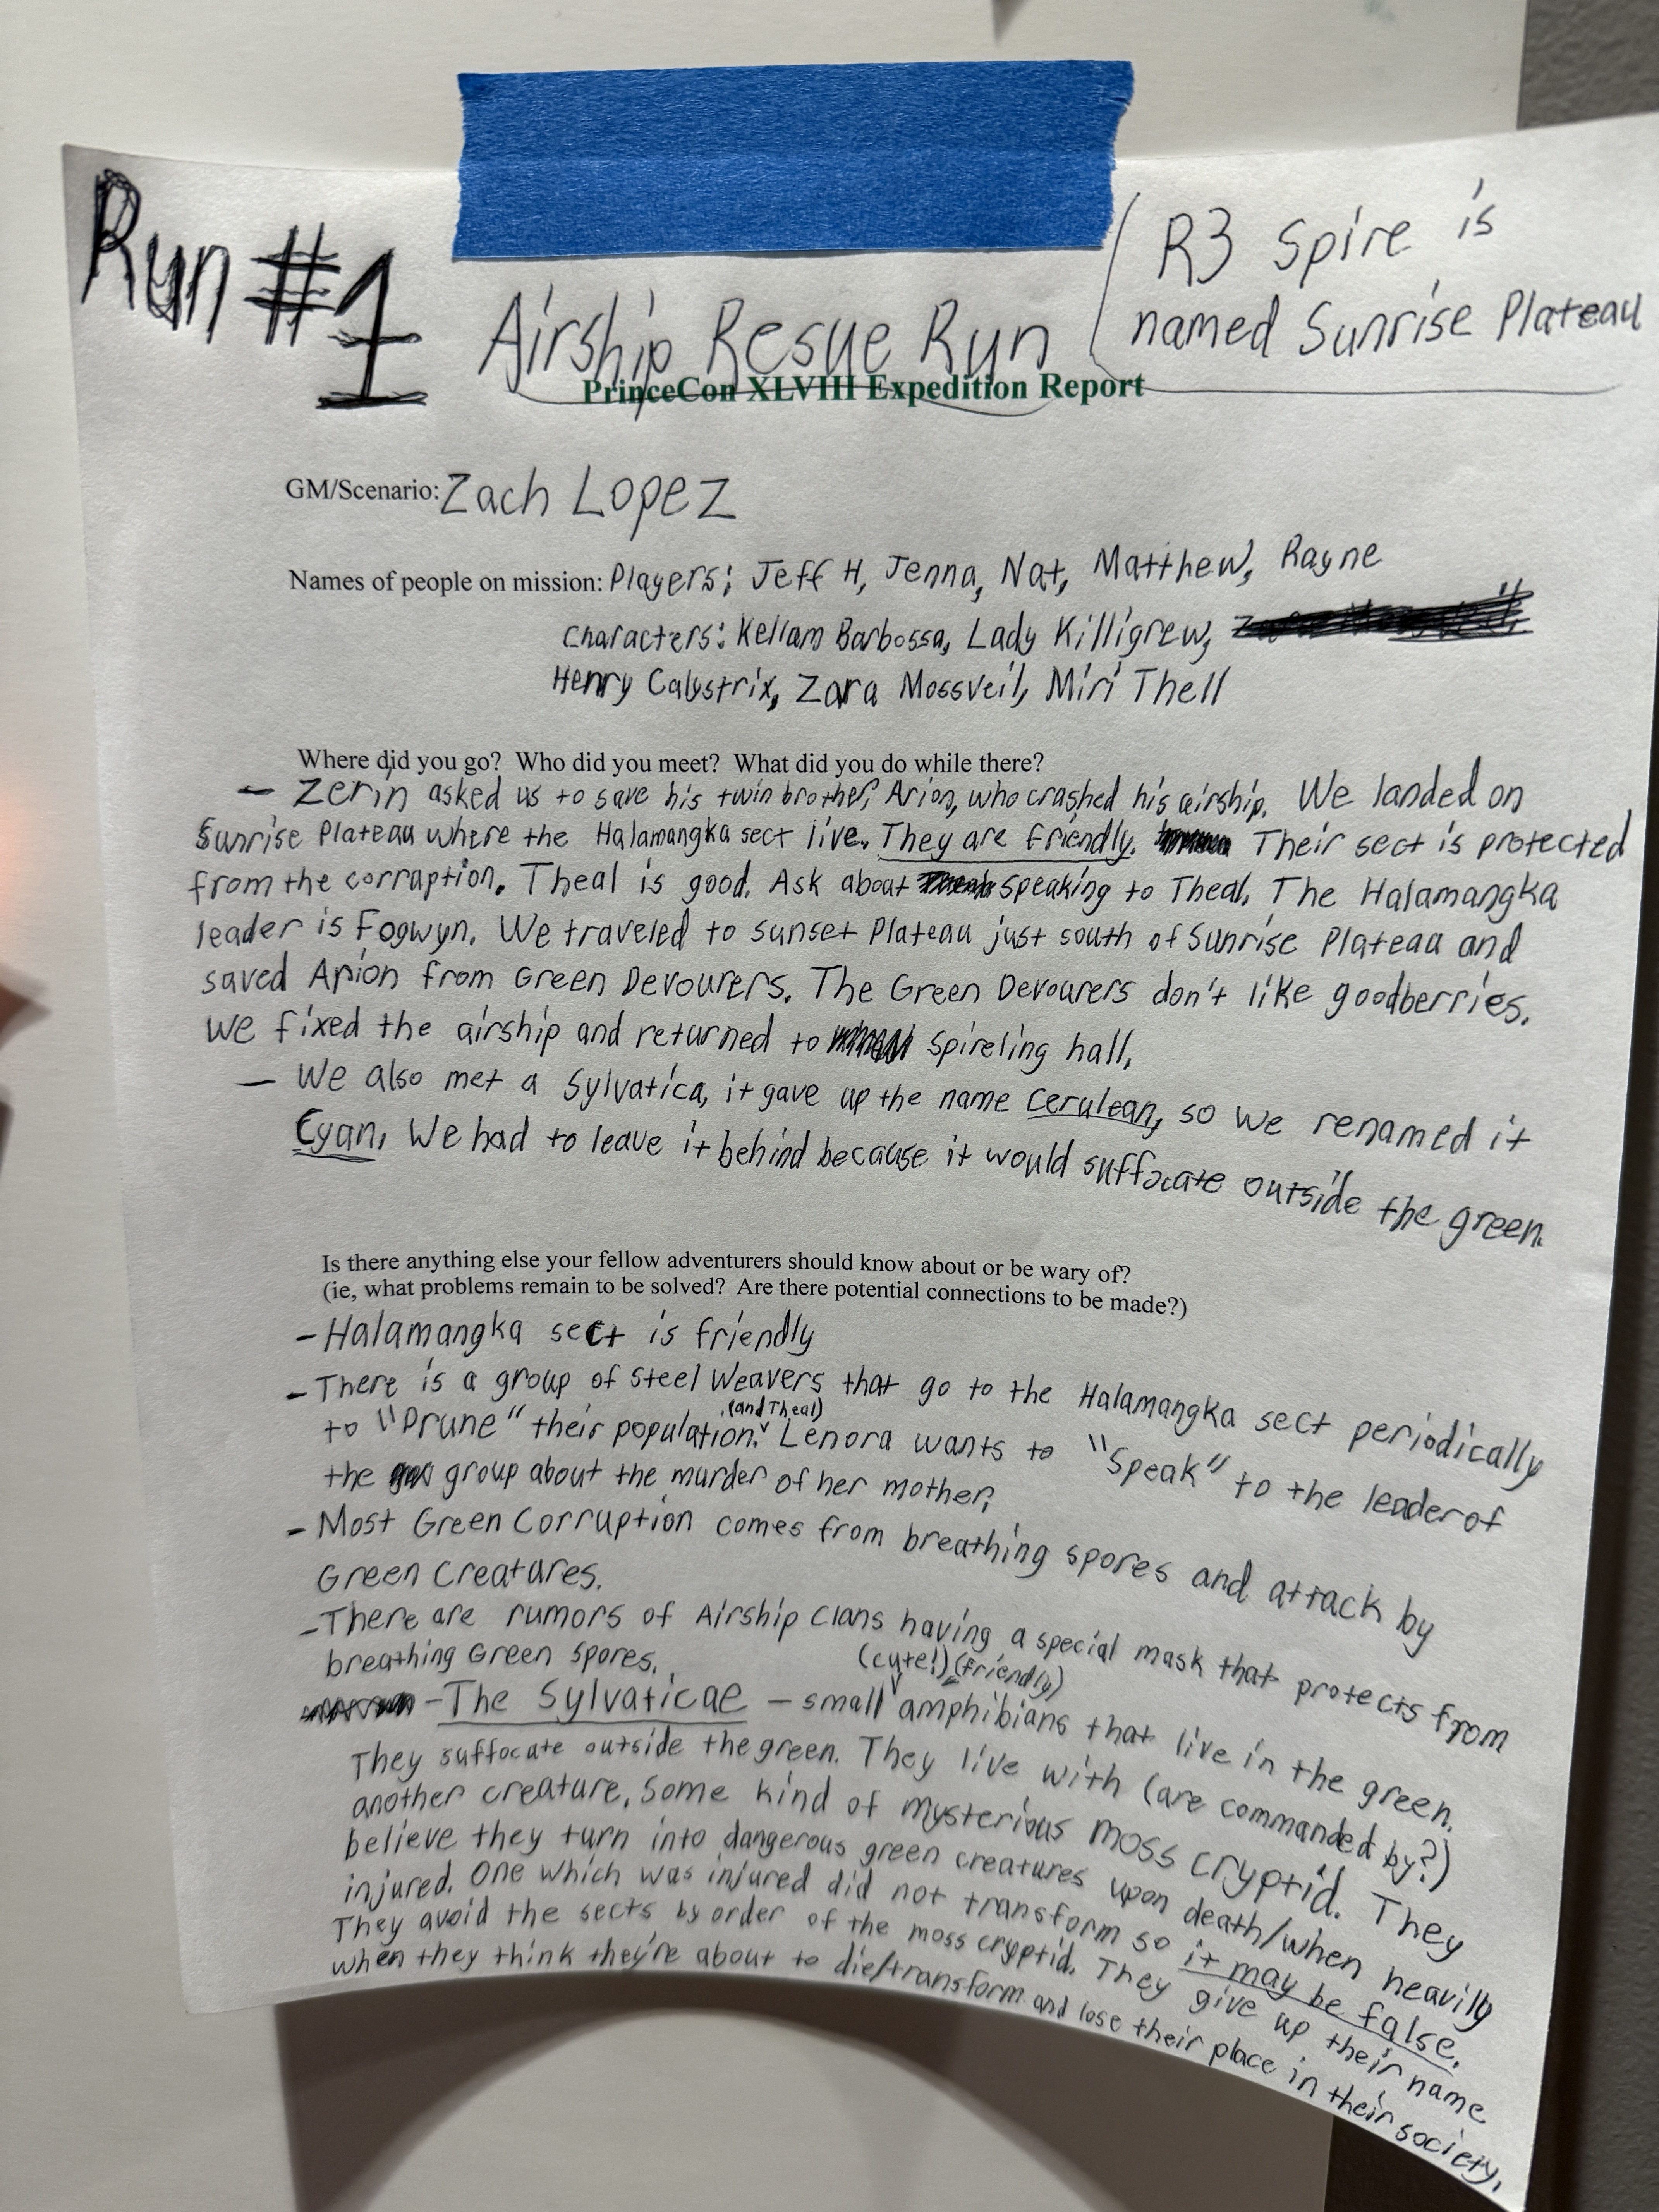 Run #1
R3 Spire is
named Sunrise Plateau
Airship Resue Run
PrinceCon XLVIII Expedition Report
GM/Scenario: Zach Lopez
Names of people on mission: Players: Jeff H, Jenna, Nat, Matthew, Rayne
Characters: Kellam Barbossa, Lady Killigrew,
Henry Calystrix, Zara Mossveil, Miri Thell
Where did you go? Who did you meet? What did you do while there?
- Zerin asked us to save his twin brother, Arion, who crashed his airship. We landed on
Sunrise Plateau where the Halamangka sect live. They are friendly. Their sect is protected
from the corraption. Theal is good. Ask about speaking to Theal. The Halamangka
leader is Fogwyn. We traveled to sunset Plateau just south of Sunrise Plateau and
saved Arion from Green Devourers. The Green Devourers don't like goodberries.
We fixed the airship and returned to Spireling hall.
- We also met a Sylvatica, it gave up the name Cerulean, so we renamed it
Cyan. We had to leave it behind because it would suffocate outside the green.
Is there anything else your fellow adventurers should know about or be wary of?
(ie, what problems remain to be solved? Are there potential connections to be made?)
- Halamangka sect is friendly
- There is a group of Steel Weavers that go to the Halamangka sect periodically
to "Prune" their population. (and Theal) Lenora wants to "Speak" to the leader of
the group about the murder of her mother.
- Most Green Corruption comes from breathing spores and attack by
Green Creatures.
- There are rumors of Airship Clans having a special mask that protects from
breathing Green Spores.
- The Sylvaticae - small (cute!) (friendly) amphibians that live in the green.
They suffocate outside the green. They live with (are commanded by?)
another creature, some kind of mysterious moss cryptid. They
believe they turn into dangerous green creatures upon death/when heavily
injured. One which was injured did not transform so it may be false.
They avoid the sects by order of the moss cryptid. They give up their name
when they think they're about to die/transform and lose their place in their society.